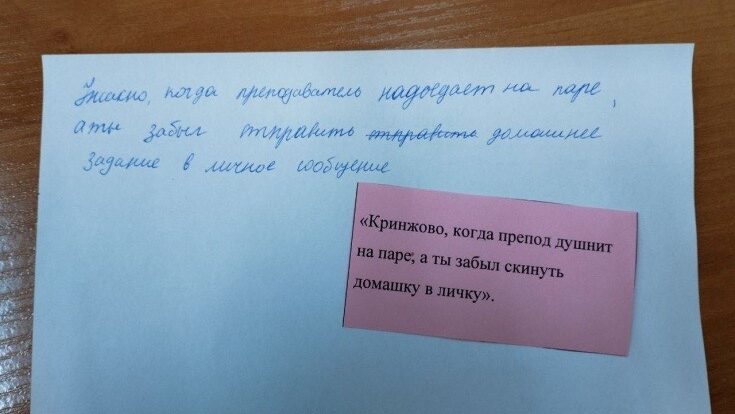 Ужасно, когда преподаватель надоедает на паре,
а ты забыл отправить отправить домашнее
задание в личное сообщение
«Кринжово, когда препод душнит
на паре, а ты забыл скинуть
домашку в личку».